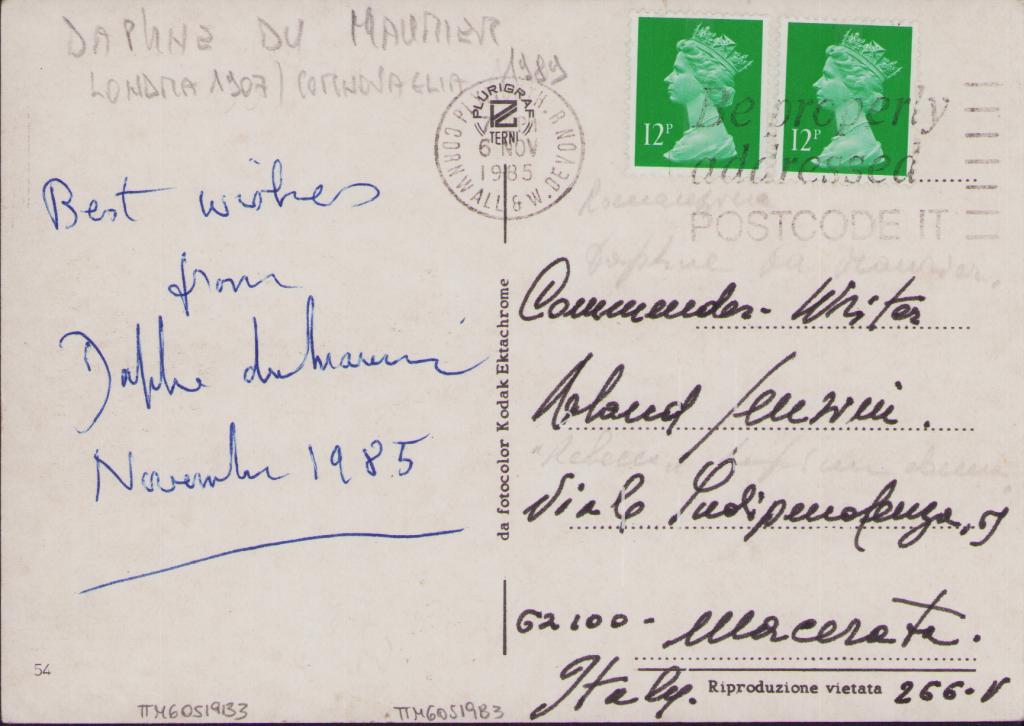 DAPHNE DU MAURIER
LONDRA 1907 / CORNOVAGLIA 1989
PLURIGRAF
TERNI
6 NOV
1985
CORNWALL & W. DEVON
12P
12P
Be properly
addressed
POSTCODE IT
Romanziera
Daphne du Maurier,
Best wishes
from
Daphne du Maurier
November 1985
da fotocolor Kodak Ektachrome
Commander - Writer
Viale Indipendenza,
62100 - Macerata.
Italy.
Riproduzione vietata
266-V
54